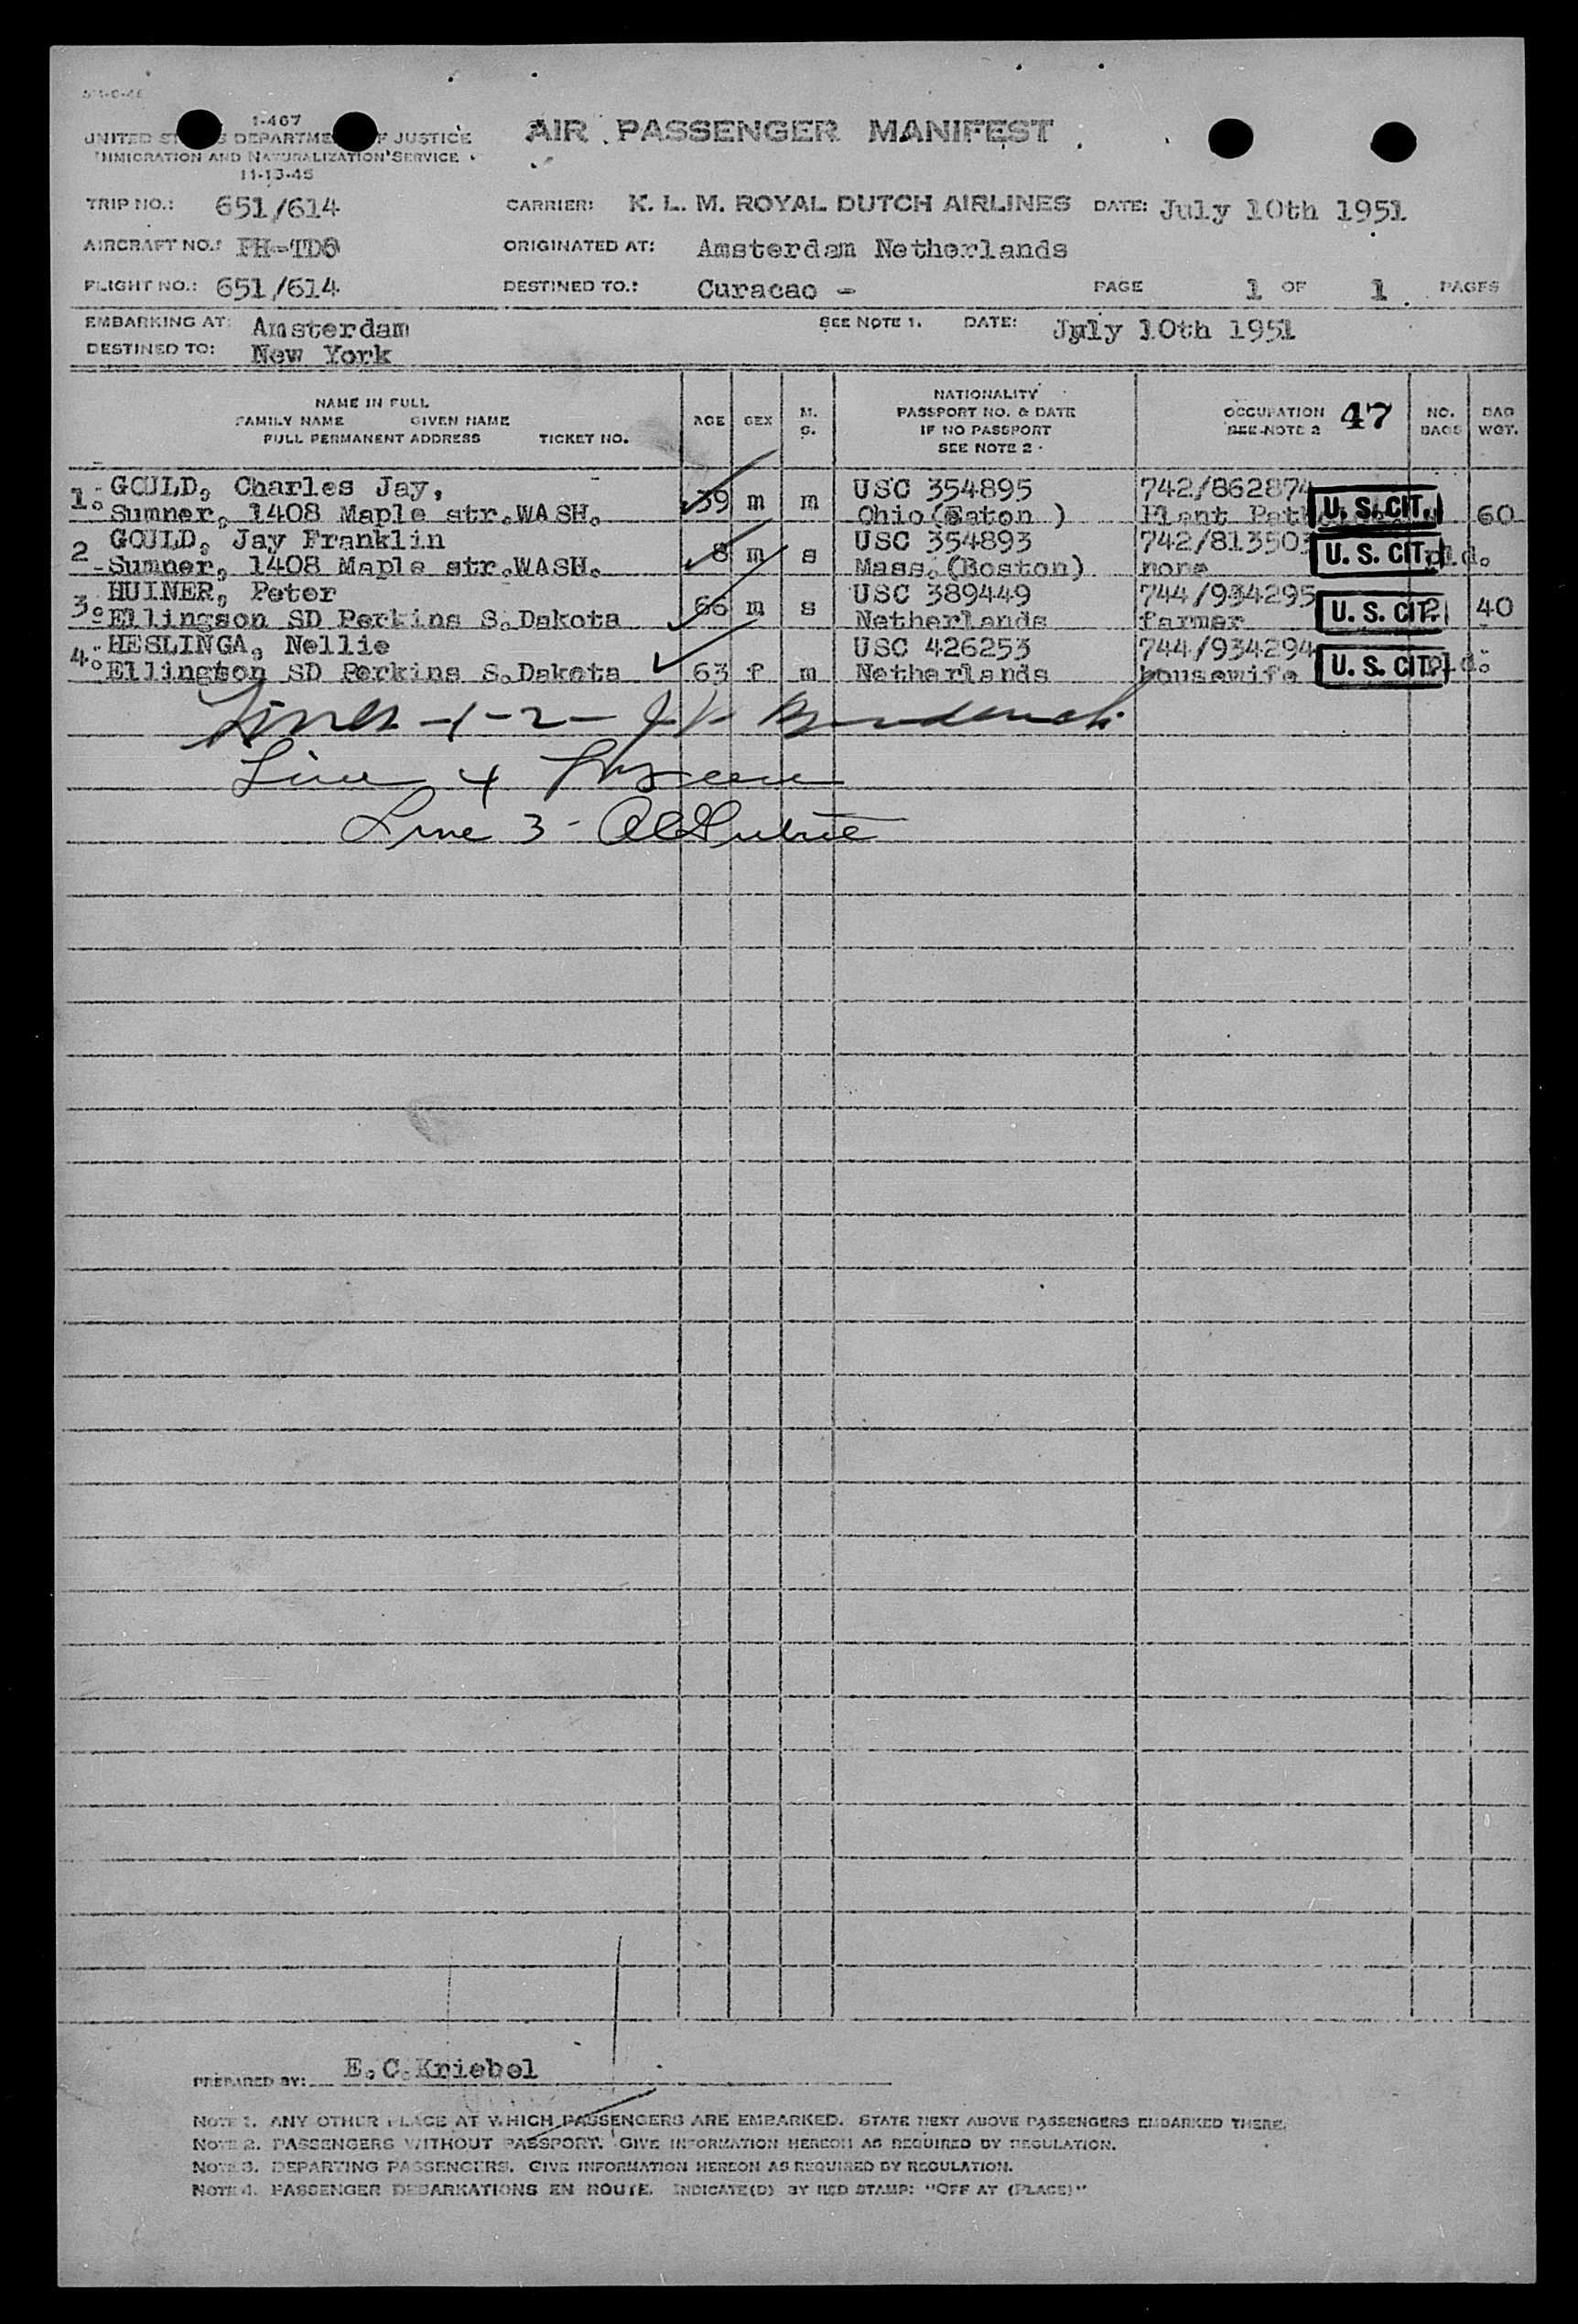 1-467
UNITED STATES DEPARTMENT OF JUSTICE
IMMIGRATION AND NATURALIZATION SERVICE
11-13-45
AIR PASSENGER MANIFEST
TRIP NO.: 651/614 CARRIER: K. L. M. ROYAL DUTCH AIRLINES DATE: July 10th 1951
AIRCRAFT NO.: PH-TDG ORIGINATED AT: Amsterdam Netherlands
FLIGHT NO.: 651/614 DESTINED TO.: Curacao - PAGE 1 OF 1 PAGES
EMBARKING AT: Amsterdam SEE NOTE 1. DATE: July 10th 1951
DESTINED TO: New York
NAME IN FULL
FAMILY NAME GIVEN NAME
FULL PERMANENT ADDRESS TICKET NO.
AGE SEX M. S.
NATIONALITY
PASSPORT NO. & DATE
IF NO PASSPORT
SEE NOTE 2
OCCUPATION 47
SEE NOTE 2
NO. BAGS
BAG WGT.
1. GOULD, Charles Jay, 39 m m USC 354895 742/862874
Sumner, 1408 Maple str.WASH. Ohio(Eaton ) Plant U. S. CIT. 60
2 GOULD, Jay Franklin 8 m s USC 354893 742/813503
Sumner, 1408 Maple str.WASH. Mass.(Boston) none U. S. CIT. pld.
3. HUINER, Peter 66 m s USC 389449 744/934295
Ellingson SD Perkins S.Dakota Netherlands farmer U. S. CIT. 2 40
4. HESLINGA, Nellie 63 f m USC 426253 744/934294
Ellington SD Perkins S.Dakota Netherlands housewife U. S. CIT. pld.
Lines -1-2-
Line 4
Line 3-
PREPARED BY: E.C.Kriebel
NOTE 1. ANY OTHER PLACE AT WHICH PASSENGERS ARE EMBARKED. STATE NEXT ABOVE PASSENGERS EMBARKED THERE.
NOTE 2. PASSENGERS WITHOUT PASSPORT. GIVE INFORMATION HEREON AS REQUIRED BY REGULATION.
NOTE 3. DEPARTING PASSENGERS. GIVE INFORMATION HEREON AS REQUIRED BY REGULATION.
NOTE 4. PASSENGER DEBARKATIONS EN ROUTE. INDICATE(D) BY RED STAMP: "OFF AT (PLACE)"